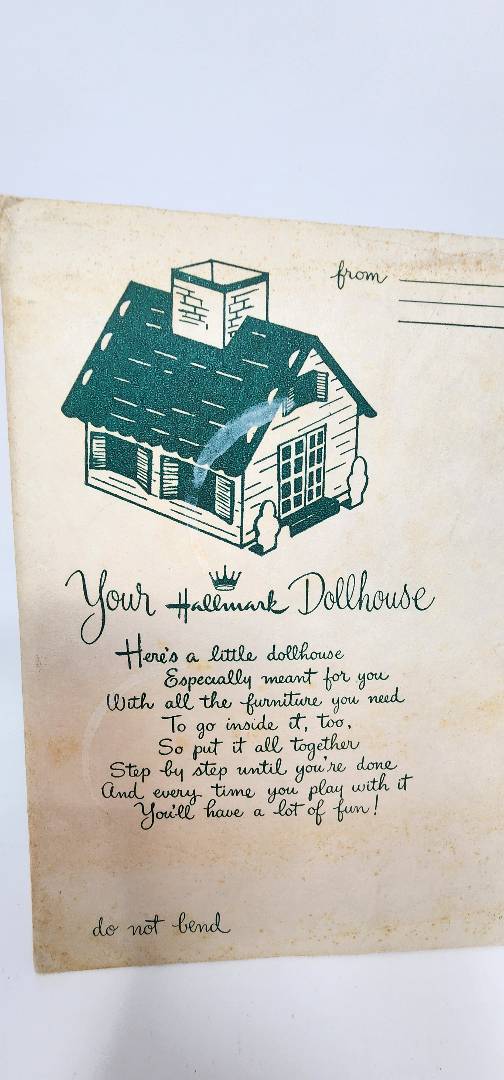 from
Your Hallmark Dollhouse
Here's a little dollhouse
Especially meant for you
With all the furniture you need
To go inside it, too,
So put it all together
Step by step until you're done
And every time you play with it
You'll have a lot of fun!
do not bend